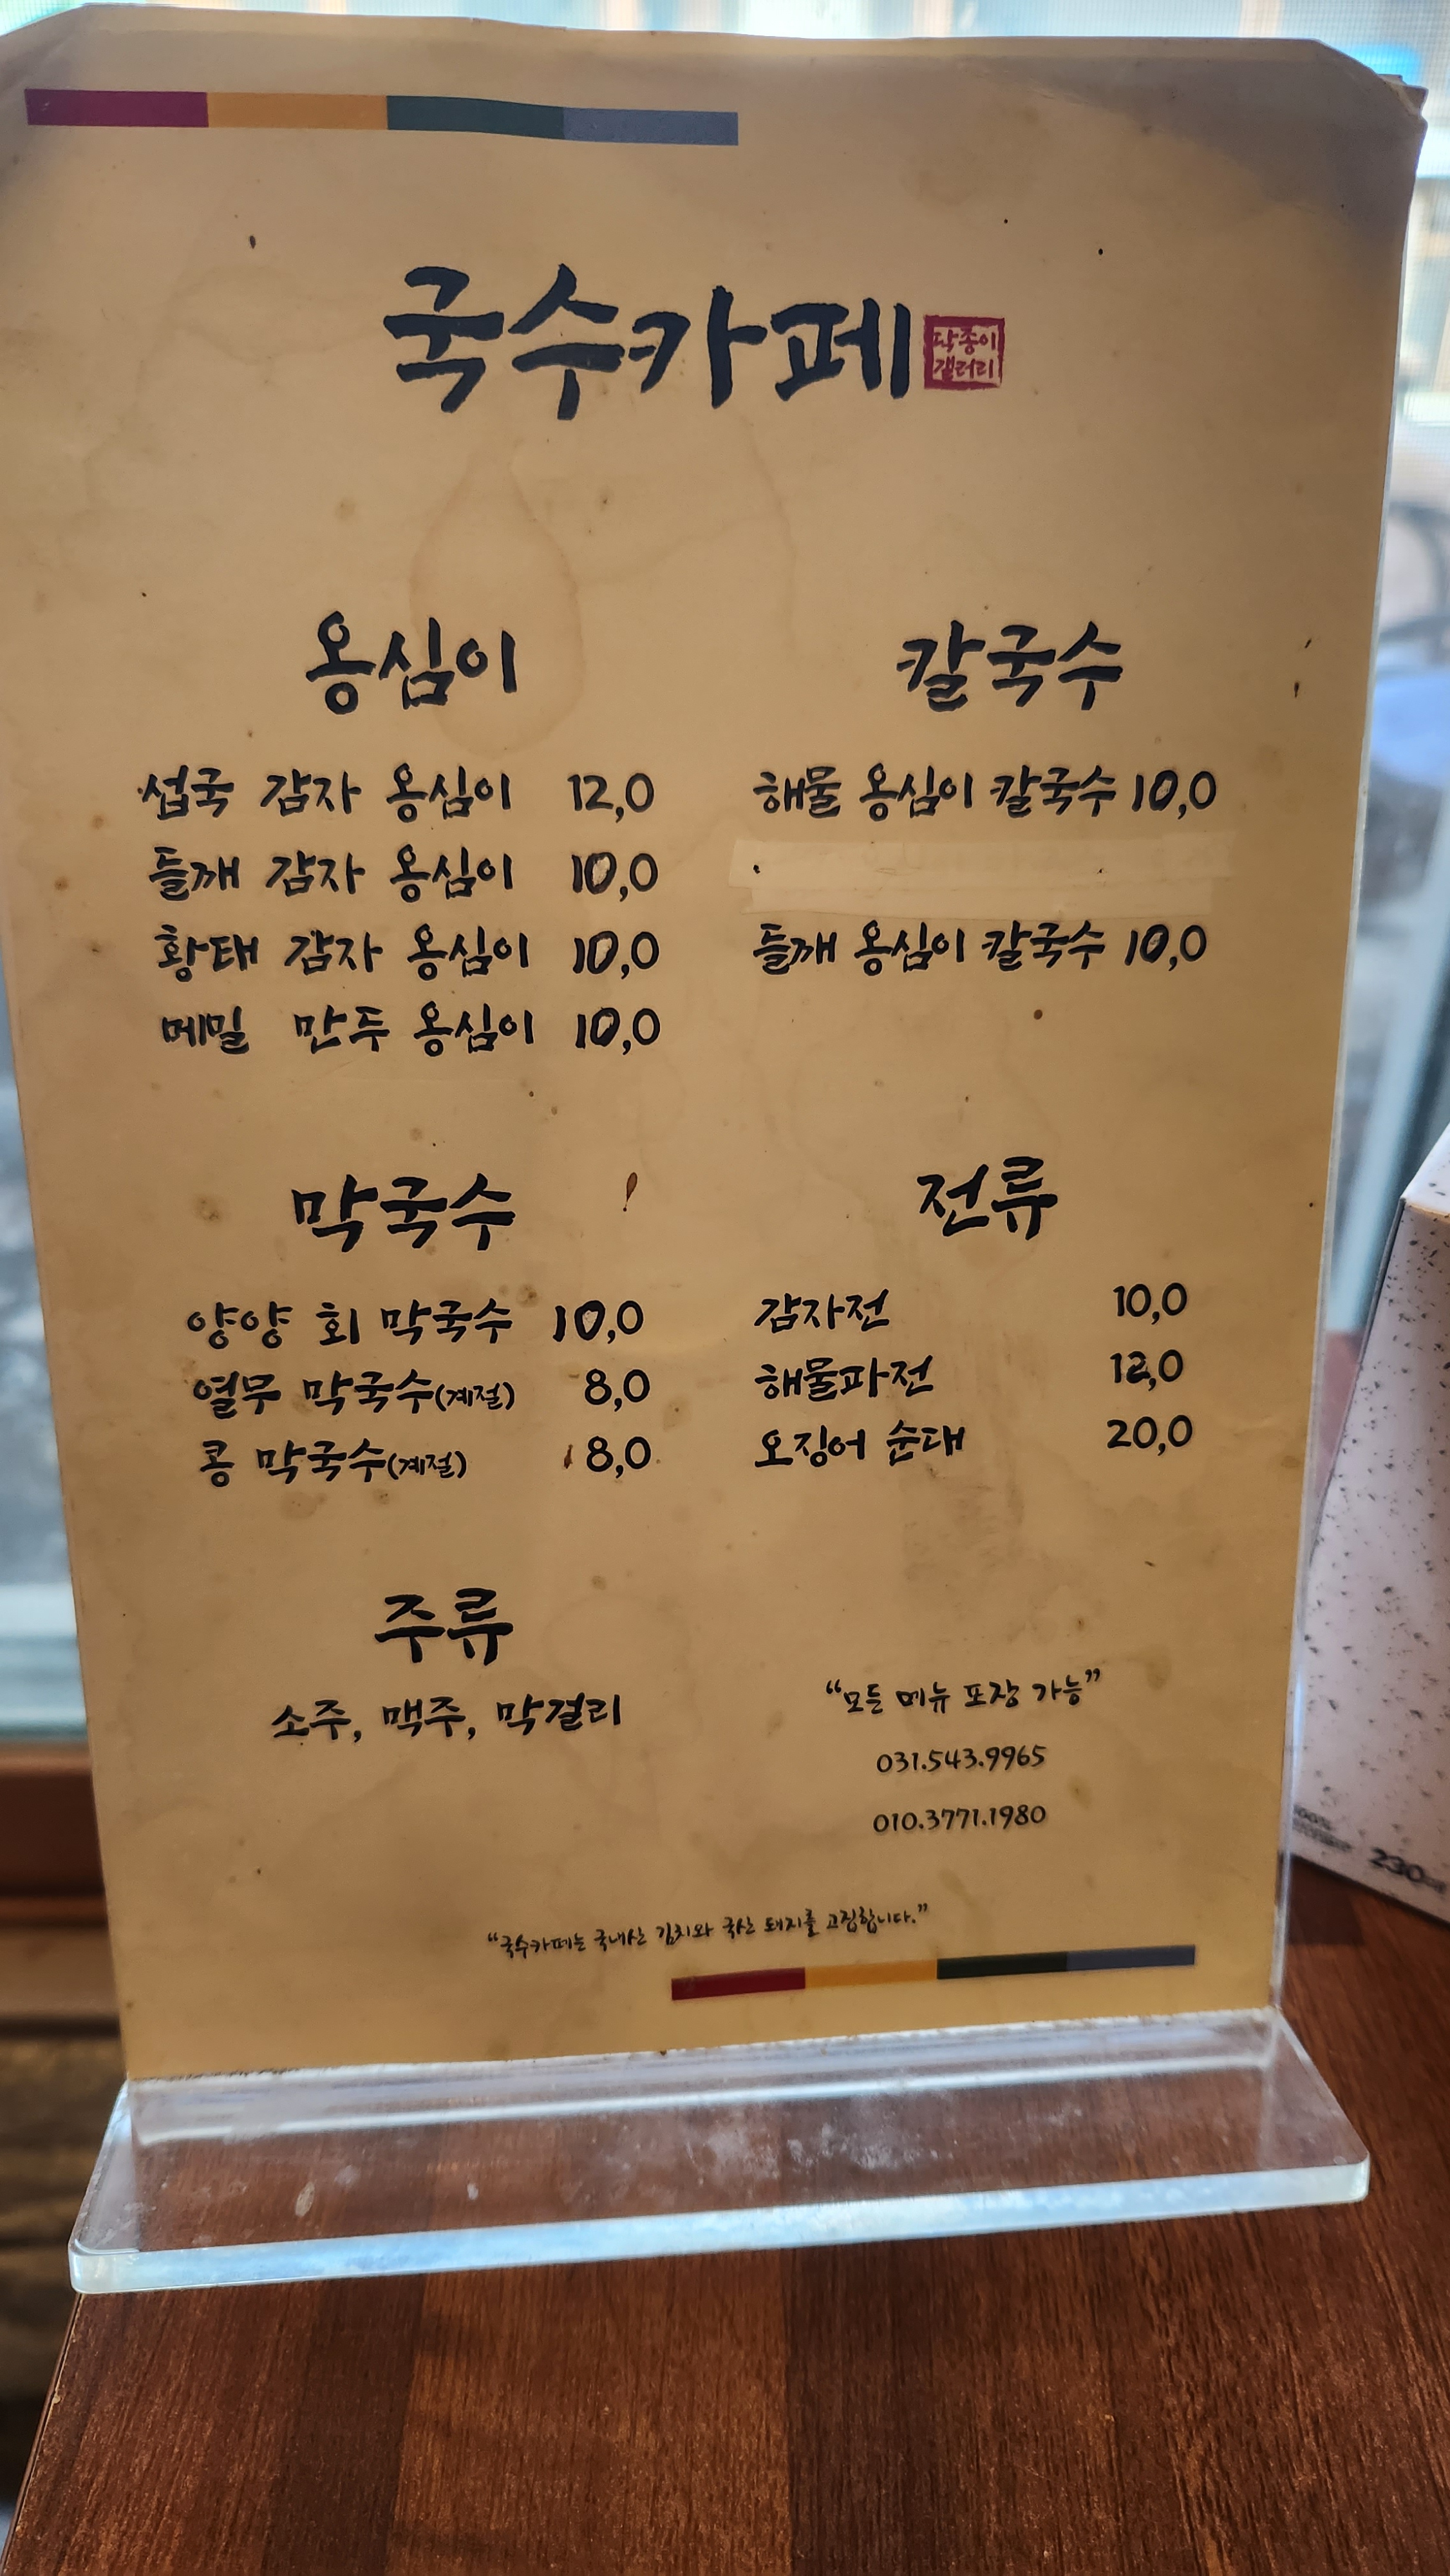 국수카페
닥종이
갤러리
옹심이
섭국 감자 옹심이 12,0
들깨 감자 옹심이 10,0
황태 감자 옹심이 10,0
메밀 만두 옹심이 10,0
칼국수
해물 옹심이 칼국수 10,0
들깨 옹심이 칼국수 10,0
막국수
양양 회 막국수 10,0
열무 막국수(계절) 8,0
콩 막국수(계절) 8,0
전류
감자전 10,0
해물파전 12,0
오징어 순대 20,0
주류
소주, 맥주, 막걸리
“모든 메뉴 포장 가능”
031.543.9965
010.3771.1980
“국수카페는 국내산 김치와 국산 돼지를 고집합니다.”
100%
230